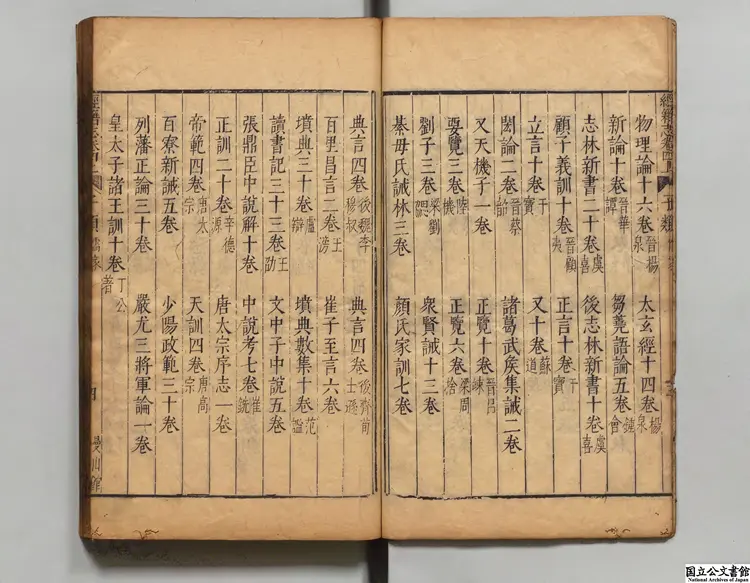 物理論十六卷 晉楊泉 太玄經十四卷 楊泉
新論十卷 晉華譚 芻蕘語論五卷 鍾會
志林新書二十卷 虞喜 後志林新書十卷 虞喜
顧子義訓十卷 晉顧夷 正言十卷 干寶
立言十卷 干寶 又十卷 蘇道
閎論二卷 晉蔡韶 諸葛武矦集誡二卷
又天機子一卷 正覽十卷 晉呂竦
要覽三卷 陸機 正覽六卷 梁周捨
劉子三卷 梁劉勰 衆賢誡十三卷
綦毋氏誡林三卷 顏氏家訓七卷
典言四卷 後魏李穆叔 典言四卷 後齊荀士遜
百里昌言二卷 王滂 崔子至言六卷
墳典三十卷 盧辯 墳典數集十卷 范謐
讀書記三十三卷 王劭 文中子中說五卷
張鼎臣中說解十卷 中說考七卷 崔銑
正訓二十卷 辛德源 唐太宗序志一卷
帝範四卷 唐太宗 天訓四卷 唐高宗
百寮新誡五卷 少陽政範三十卷
列藩正論三十卷 嚴尤三將軍論一卷
皇太子諸王訓十卷 丁公著
四
曼山館
国立公文書館
National Archives of Japan